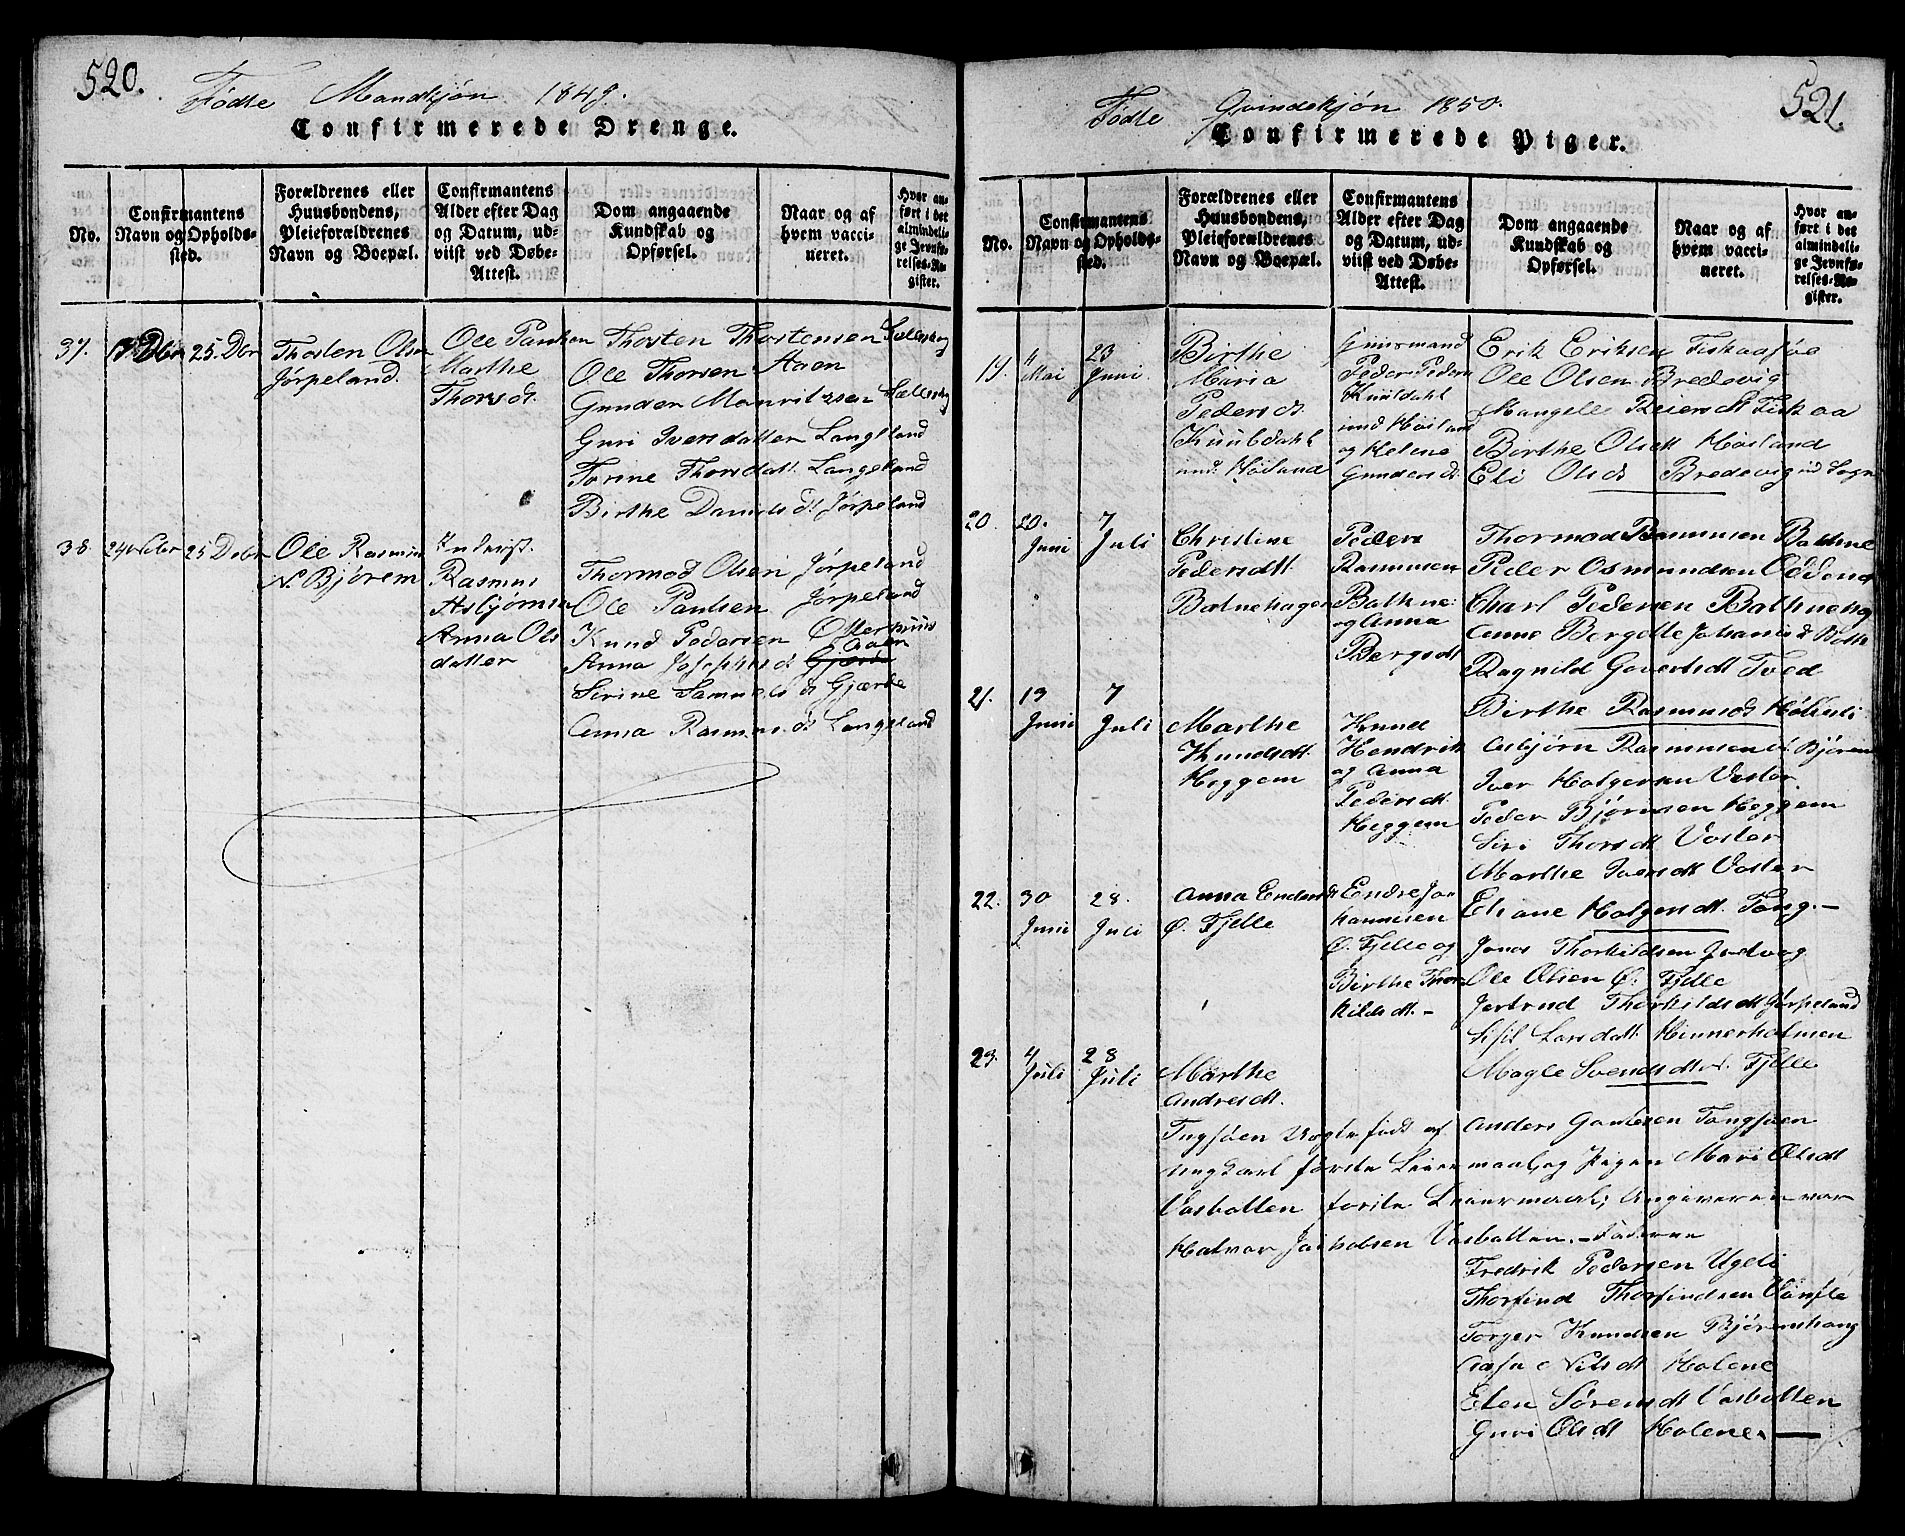 520.
Fødte Mandkjøn 1849.
Confirmerede Drenge.
No.
Confirmantens Navn og Opholds-sted.
Forældrenes eller Huusbondens, Pleieforældrenes Navn og Boepæl.
Confirmantens Alder efter Dag og Datum, ud-viist ved Døbe-Attest.
Dom angaaende Kundskab og Opførsel.
Naar og af hvem vacci-neret.
Hvor an-ført i det almindeli-ge Jevnfø-relses-Re-gister.
37. 17 Dbr 25. Dbr
Thosten Olsen
Jørpeland.
Ole Paulsen
Marthe
Thorsd.
Thosten Thostensen
Ole Thorsen Aaen
Gunder Mauritzsen
Guri Iversdatter Langeland
Torine Thorsdatt. Langeland
Birthe Daniels dt Jørpeland
38. 24 25 Debr
Ole Rasmus
N. Bjørem
Inderst.
Rasmus
Asbjørnsen
Anna Ols
datter
Thormod Olsen Jørpeland
Ole Paulsen Jørpeland
Knud Pedersen
Anna Josephs d. Aaen
Serine Samuels d. Gjærde
Anna Rasmus dt. Langeland
521.
Fødte Qvindekjøn 1850.
Confirmerede Piger.
No.
Confirmantens Navn og Opholds-sted.
Forældrenes eller Huusbondens, Pleieforældrenes Navn og Boepæl.
Confirmantens Alder efter Dag og Datum, ud-viist ved Døbe-Attest.
Dom angaaende Kundskab og Opførsel.
Naar og af hvem vacci-neret.
Hvor an-ført i det almindeli-ge Jevnfø-relses-Re-gister.
19. 4 Mai 23 Juni.
Birthe
Maria
Pedersdt.
und. Høiland
Huusmand
Peder Peders
und. Høiland
og Helene
Gundersd.
Erik Eriksen Fiskaasøe
Ole Olsen Bredevig
Reiersdt. Fiskaa
Birthe Olsdt Høiland
Eli Olsdt Bredevig
20. 20. Juni 7 Juli
Christine
Pedersdt.
Batnehagen
Peder
Rasmusen
Bathne
og Anna
Bergsdt
Thormod Rasmusen Bathne
Peder Osmundsen
Charl Pedersen Bathnehg
Ragnild Tved
Birthe Rasmusd
21. 13 Juni 7 Juli
Marthe
Knudsdt.
Heggem
Knud
Hendrik
og Anna
Pedersdt.
Heggem
Asbjørn Rasmusen Bjørem
Iver Holgersen Voster
Peder Bjørnsen Heggem
Siri Thorsdt Voster
Marthe Iversdt Voster
Eliane Holgersdt. Tong.-
22. 30 Juni 28. Juli
Anna Endersdt
Ø. Fjelle
Endre Jo
hannesen
Ø. Fjelle og
Birthe Thor
kildsdt.-
Jonas Thorkildsen
Ole Olsen Ø. Fjelle
Jertrud Thorkildsdt Jørpeland
Larsdatt. Hinnerholmen
Svendsdt. Fjelle
23. 4 Juli 28 Juli
Marthe
Andresdt.
Uægte født af Anders Tungsøen
Ungkarl første Leiermaal, og Pigen Mari Olsdt
Vasbotten første Leiermaal; Angiveren var
Halvor Jacobsen Vasbotten.- Fadderne
Fredrik Pedersen
Thorfind Thorfindsen
Torger Knudsen Bjørnshaug
Nilsdt Holene
Elen Sørensdt Vasbotten
Guri Olsdt Holene.